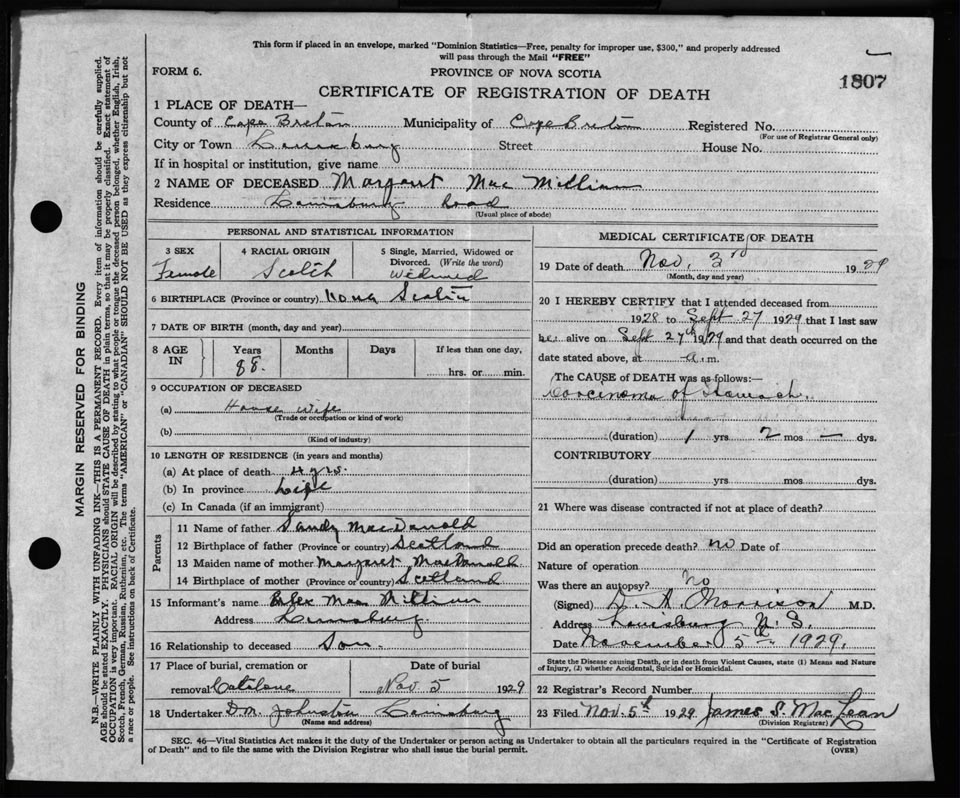 This form if placed in an envelope, marked "Dominion Statistics—Free, penalty for improper use, $300," and properly addressed
will pass through the Mail "FREE"
FORM 6.
PROVINCE OF NOVA SCOTIA
1807
CERTIFICATE OF REGISTRATION OF DEATH
1 PLACE OF DEATH—
County of Cape Breton Municipality of Cape Breton Registered No.
(For use of Registrar General only)
City or Town Louisburg Street House No.
If in hospital or institution, give name
2 NAME OF DECEASED Margaret Mac Millian
Residence Louisburg Road
(Usual place of abode)
PERSONAL AND STATISTICAL INFORMATION
3 SEX 4 RACIAL ORIGIN 5 Single, Married, Widowed or
Divorced. (Write the word)
Female Scotch Widowed
6 BIRTHPLACE (Province or country) Nova Scotia
7 DATE OF BIRTH (month, day and year)
8 AGE IN Years Months Days If less than one day,
88. hrs. or min.
9 OCCUPATION OF DECEASED
(a) House wife
(Trade or occupation or kind of work)
(b)
(Kind of industry)
10 LENGTH OF RESIDENCE (in years and months)
(a) At place of death 4 yrs.
(b) In province Life
(c) In Canada (if an immigrant)
Parents
11 Name of father Sandy MacDonald
12 Birthplace of father (Province or country) Scotland
13 Maiden name of mother Margaret MacDonald
14 Birthplace of mother (Province or country) Scotland
15 Informant's name Mac Millian
Address Louisburg
16 Relationship to deceased Son.
17 Place of burial, cremation or Date of burial
removal Catalone Nov. 5 1929
18 Undertaker D.M. Johnston Louisburg
(Name and address)
MEDICAL CERTIFICATE OF DEATH
19 Date of death Nov. 3rd 1929
(Month, day and year)
20 I HEREBY CERTIFY that I attended deceased from
1928 to Sept 27 1929 that I last saw
her alive on Sept 27th 1929 and that death occurred on the
date stated above, at a.m.
The CAUSE of DEATH was as follows:—
Carcinoma of stomach.
(duration) 1 yrs 2 mos — dys.
CONTRIBUTORY
(duration) yrs. mos. dys.
21 Where was disease contracted if not at place of death?
Did an operation precede death? no Date of
Nature of operation
Was there an autopsy? No
(Signed) D. A. Morrison M.D.
Address Louisburg N. S.
Date November 5th 1929.
State the Disease causing Death, or in death from Violent Causes, state (1) Means and Nature
of Injury, (2) whether Accidental, Suicidal or Homicidal.
22 Registrar's Record Number
23 Filed Nov. 5th 1929 James S. MacLean
(Division Registrar)
SEC. 46—Vital Statistics Act makes it the duty of the Undertaker or person acting as Undertaker to obtain all the particulars required in the "Certificate of Registration
of Death" and to file the same with the Division Registrar who shall issue the burial permit.
(OVER)
MARGIN RESERVED FOR BINDING
N.B.—WRITE PLAINLY WITH UNFADING INK—THIS IS A PERMANENT RECORD. Every item of information should be carefully supplied.
AGE should be stated EXACTLY. PHYSICIANS should STATE CAUSE OF DEATH in plain terms, so that it may be properly classified. Exact statement of
OCCUPATION is very important. RACIAL ORIGIN will be described by stating to what people or tongue the deceased person belonged, whether English, Irish,
Scotch, French, German, Russian, Ruthenian, etc. The terms "AMERICAN" or "CANADIAN" SHOULD NOT BE USED as they express citizenship but not
a race or people. See instructions on back of Certificate.